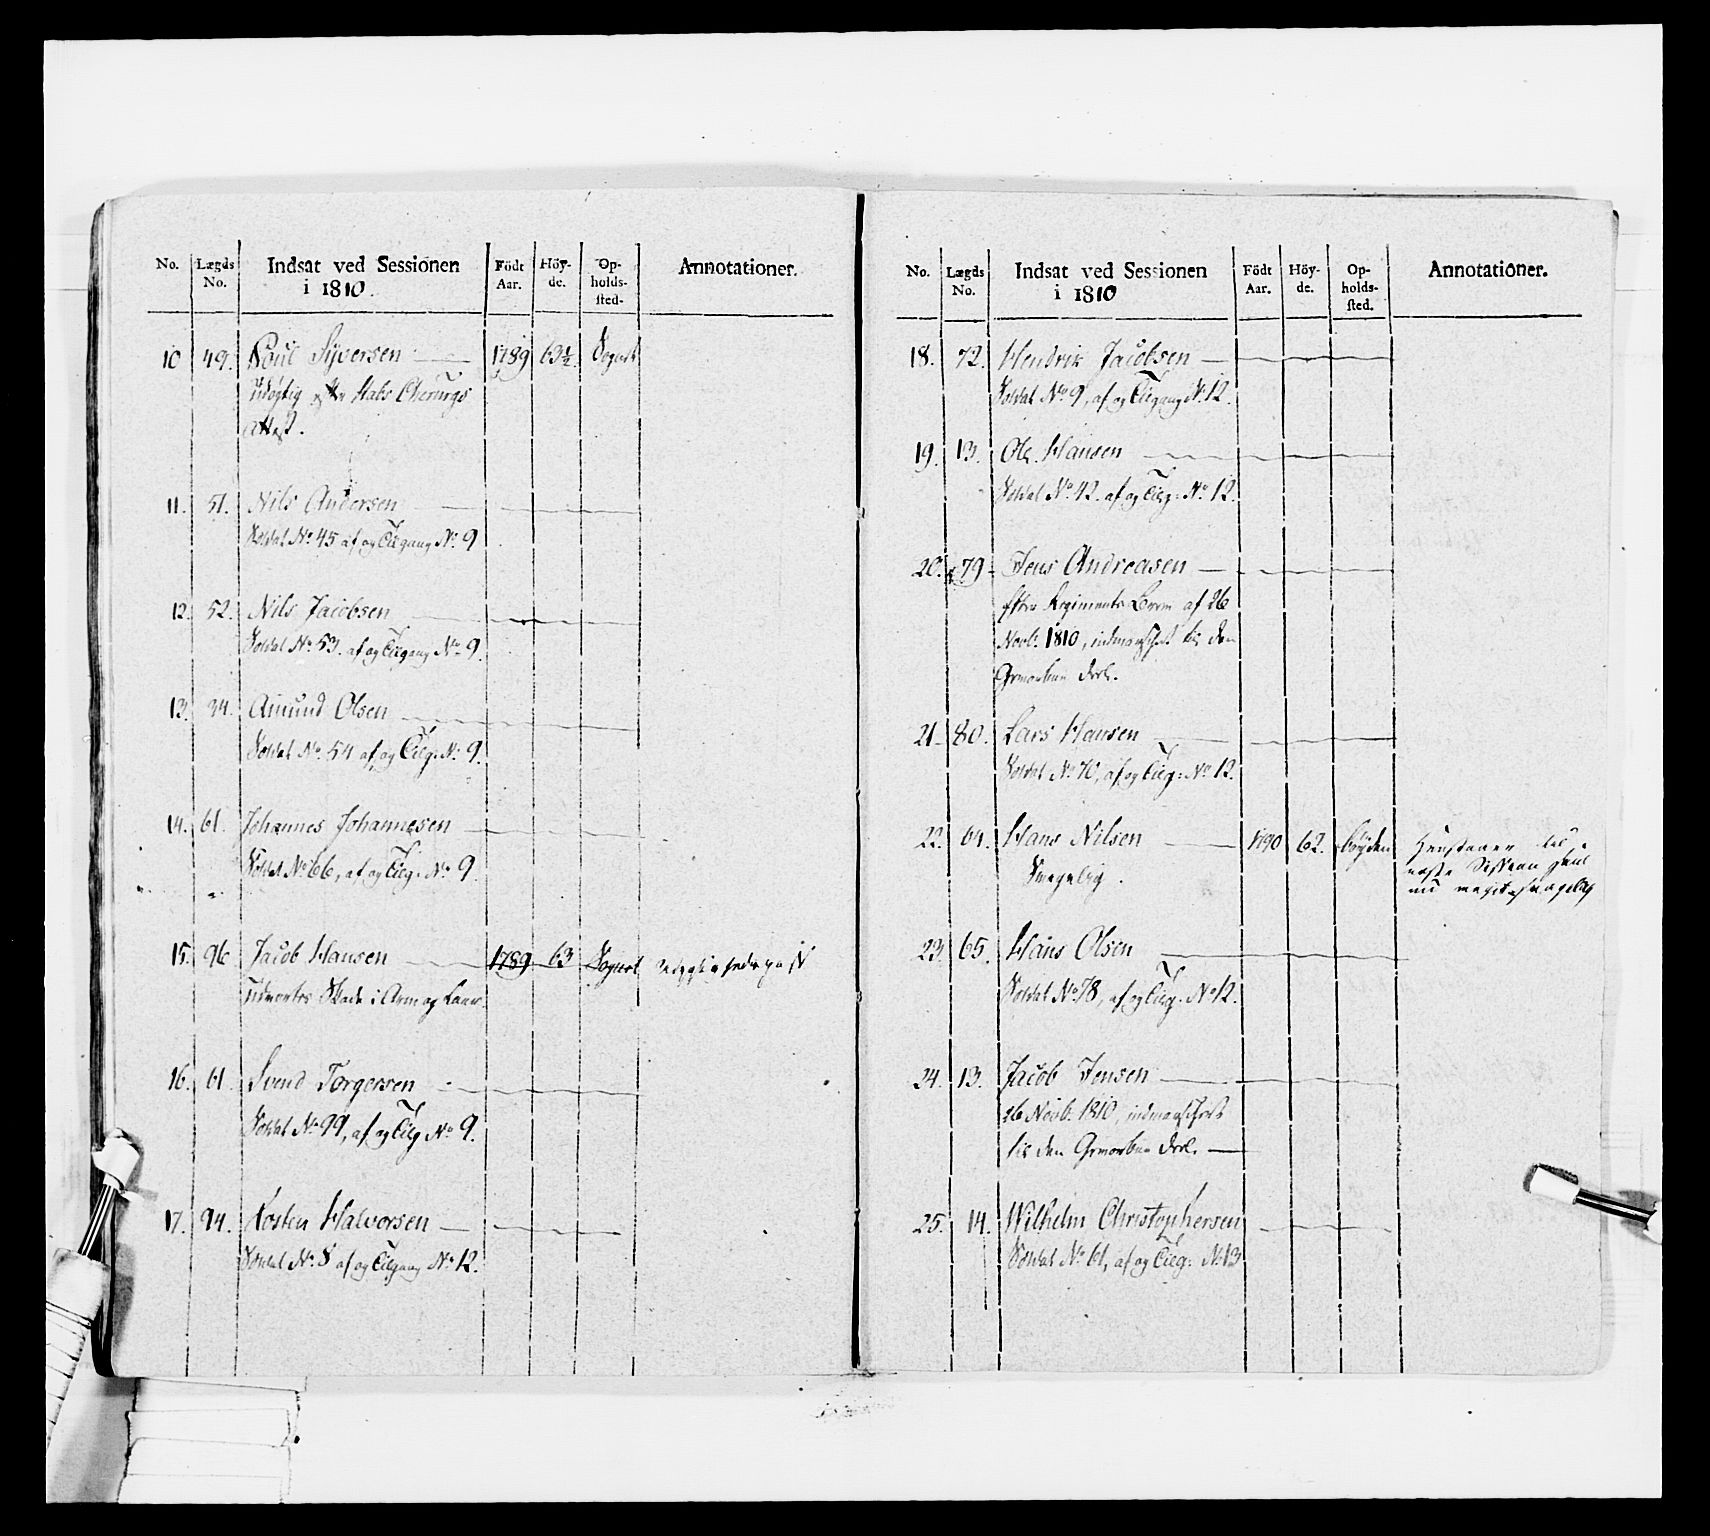 No. Lægds No. Indsat ved Sessionen i 1810. Födt Aar. Höyde. Opholdssted. Annotationer.
10 49. Poul Syversen 1789 63½. Sognet
Udögtig efter Stabs Chirurgs
attest.
11. 51. Nils Andersen
Soldat No. 45 af og Tilgang No. 9
12. 52. Nils Jacobsen
Soldat No. 53. af og Tilgang No. 9.
13. 34. Amund Olsen
Soldat No. 54 af og Tilg: No. 9.
14. 61. Johannes Johannesen
Soldat No 66, af og Tilg: No. 9.
15. 96 Jacob Hansen 1789 63 Sognet
Skade i Arm og Laar.
16. 61. Svend Torgersen
Soldat No 99, af og Tilg No 9.
17. 94. Halvorsen
Soldat No. 8 af og Tilgang No. 12.
No. Lægds No. Indsat ved Sessionen i 1810 Födt Aar. Höyde. Opholdssted. Annotationer.
18. 72. Hendrik Jacobsen
Soldat No. 9, af og Tilgang No. 12.
19. 13. Ole Hansen
Soldat No. 42. af og Tilg: No. 12.
20. 79 Jens Andreasen
efter Regiments af 26
Novb: 1810, til den
21. 80. Lars Hansen
Soldat No. 70, af og Tilg: No 12.
22. 64. Hans Nilsen 1790 62.
til
næste Session
nu
23. 65. Hans Olsen
Soldat No. 78, af og Tilg: No 12.
24. 13. Jacob Jensen
26 Novb: 1810,
til den
25. 14. Wilhelm Christophersen
Soldat No 61, af og Tilg: No. 13